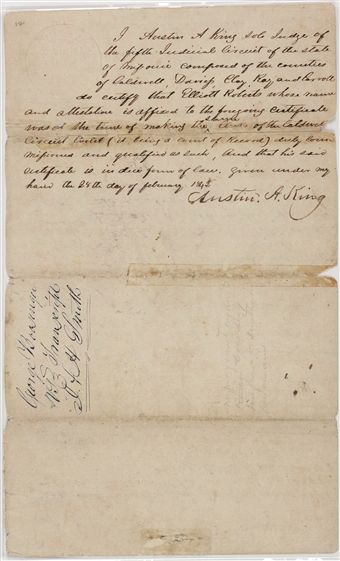 I Austin A King sole Judge of
the fifth Judicial Circuit of the state
of Missouri composed of the counties
of Caldwell, Daviss, Clay, Ray, and Carroll
do certify that Elliott Roberts whose name
and attestation is affixed to the foregoing certificate
was at the time of making the same Clerk of the Caldwell
Circuit Court (it being a court of Record) duly com
missioned and qualified as such, And that his said
certificate is in due form of law. given under my
hand the 24th day of february
Austin. A. King
George
Transcript
Smith